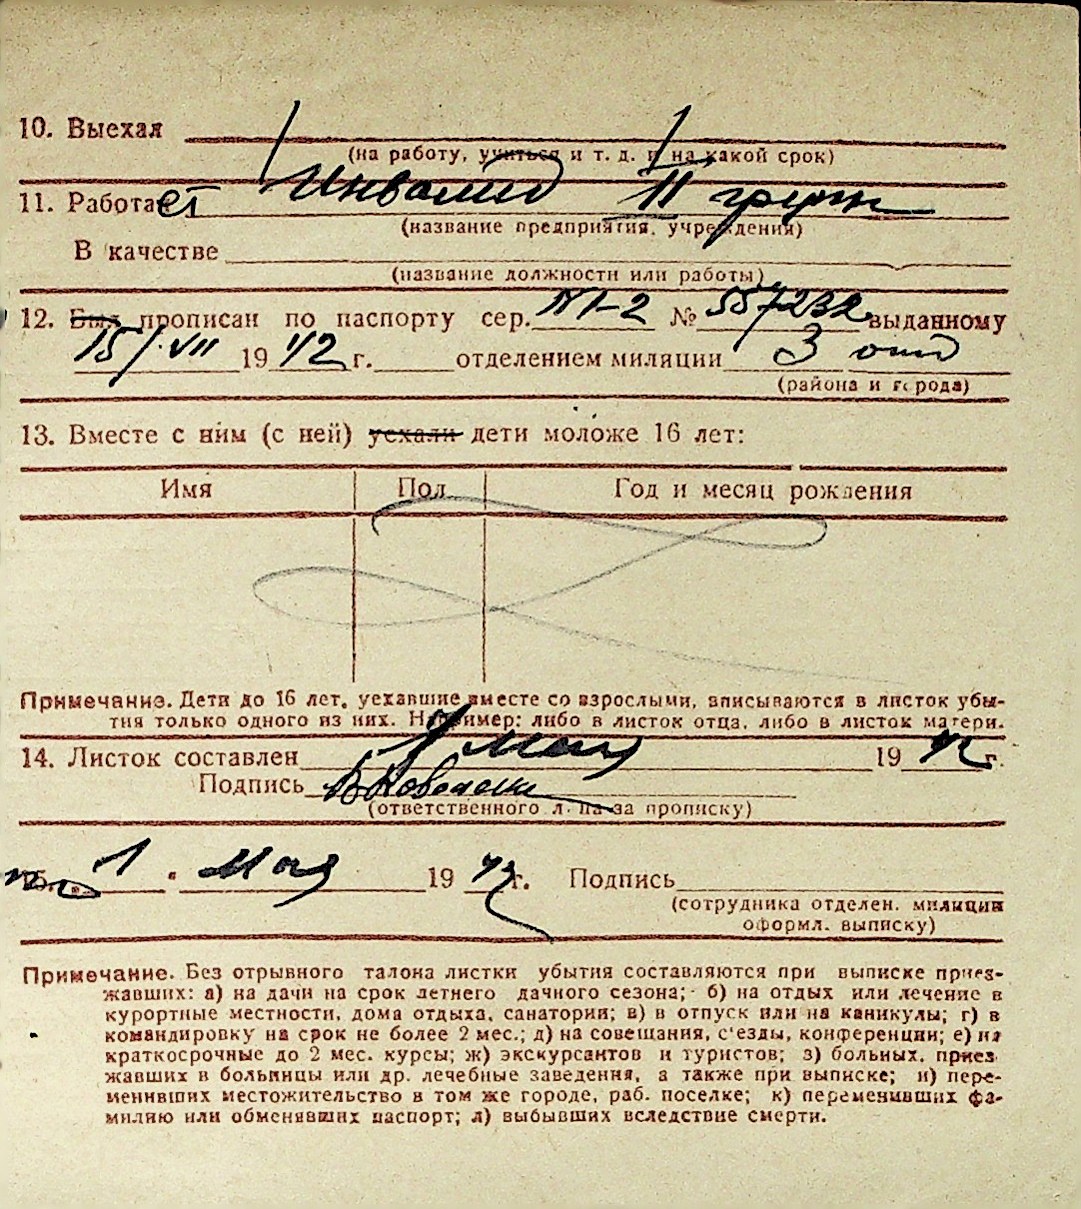 10. Выехал
(на работу, учиться и т. д. и на какой срок)
11. Работает Инвалид II групп
(название предприятия, учреждения)
В качестве
(название должности или работы)
12. Был прописан по паспорту сер. № 557232 выданному
15/VII 1942 г. отделением милиции 3 отд
(района и города)
13. Вместе с ним (с ней) уехали дети моложе 16 лет:
Имя Пол Год и месяц рождения
Примечание. Дети до 16 лет, уехавшие вместе со взрослыми, вписываются в листок убы-
тия только одного из них. Например: либо в листок отца, либо в листок матери.
14. Листок составлен 1 Мая 1942 г.
Подпись
(ответственного л-ца за прописку)
15. 1 " Мая 1942 г. Подпись
(сотрудника отделен. милиции
оформл. выписку)
Примечание. Без отрывного талона листки убытия составляются при выписке приез-
жавших: а) на дачи на срок летнего дачного сезона; б) на отдых или лечение в
курортные местности, дома отдыха, санатории; в) в отпуск или на каникулы; г) в
командировку на срок не более 2 мес.; д) на совещания, с'езды, конференции; е) на
краткосрочные до 2 мес. курсы; ж) экскурсантов и туристов; з) больных, приез
жавших в больницы или др. лечебные заведения, а также при выписке; и) пере-
менивших местожительство в том же городе, раб. поселке; к) переменивших фа-
милию или обменявших паспорт; л) выбывших вследствие смерти.